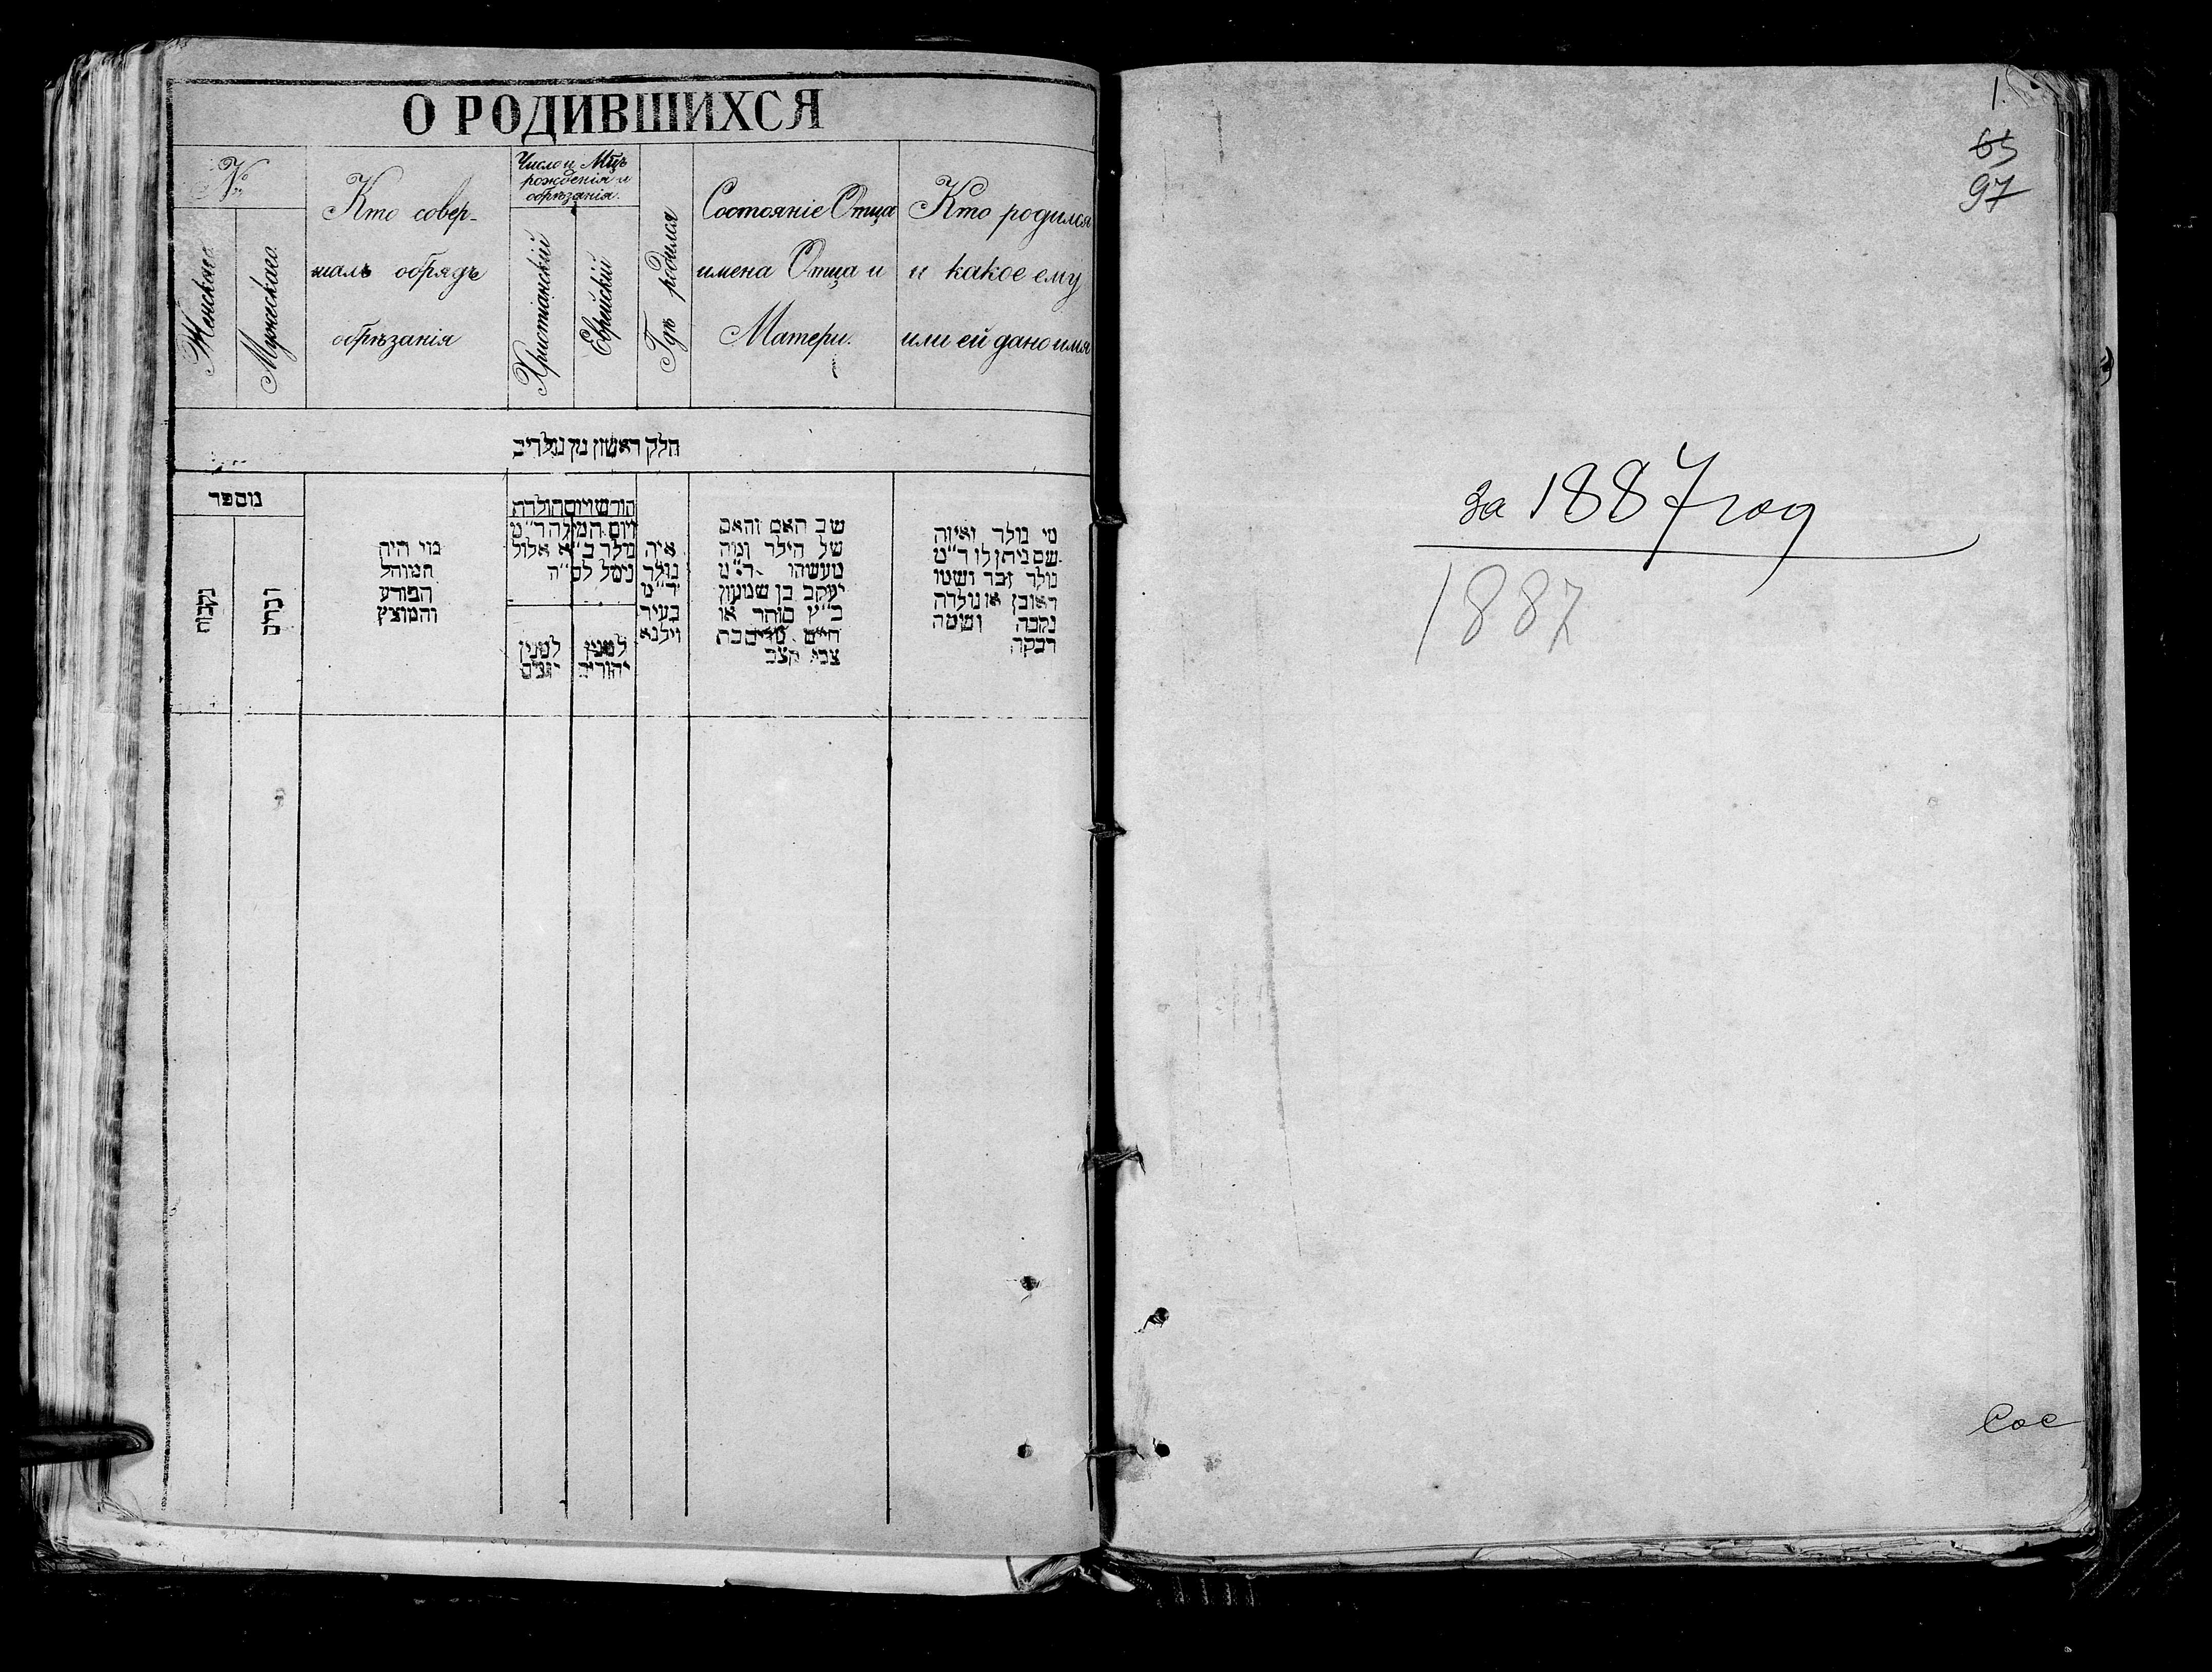 О РОДИВШИХСЯ
№
Женскаго.
Мужескаго.
Кто совер-
шалъ обрядъ
обрѣзанія
Число и Мцъ
рожденія и
обрѣзанія.
Христіанскій
Еврейскій
Гдѣ родился
Состояніе Отца
имена Отца и
Матери.
Кто родился
и какое ему
или ей дано имя
חלק ראשון מן נולדים
מספר
נקבות
זכרים
מי היה
המוהל
הפורע
והמוצץ
חודש ויום הולדת
ויום המילה ד״מ
נולד ב״א אלול
נימל לס״ה
למנין
יונים
למנין
יהודים
איה
נולד
ד״מ
בעיר
וילנא
שם האם והאב
של הילד ומה
מעשהו ד״מ
יעקב בן שמעון
כ״ץ סוחר או
חיים בת
צבי קצב
מי נולד ואיזה
שם ניתן לו ד״מ
נולד זכר ושמו
ראובן או נולדה
נקבה ושמה
רבקה
1.
65
97
за 1887 год
1887
Сос